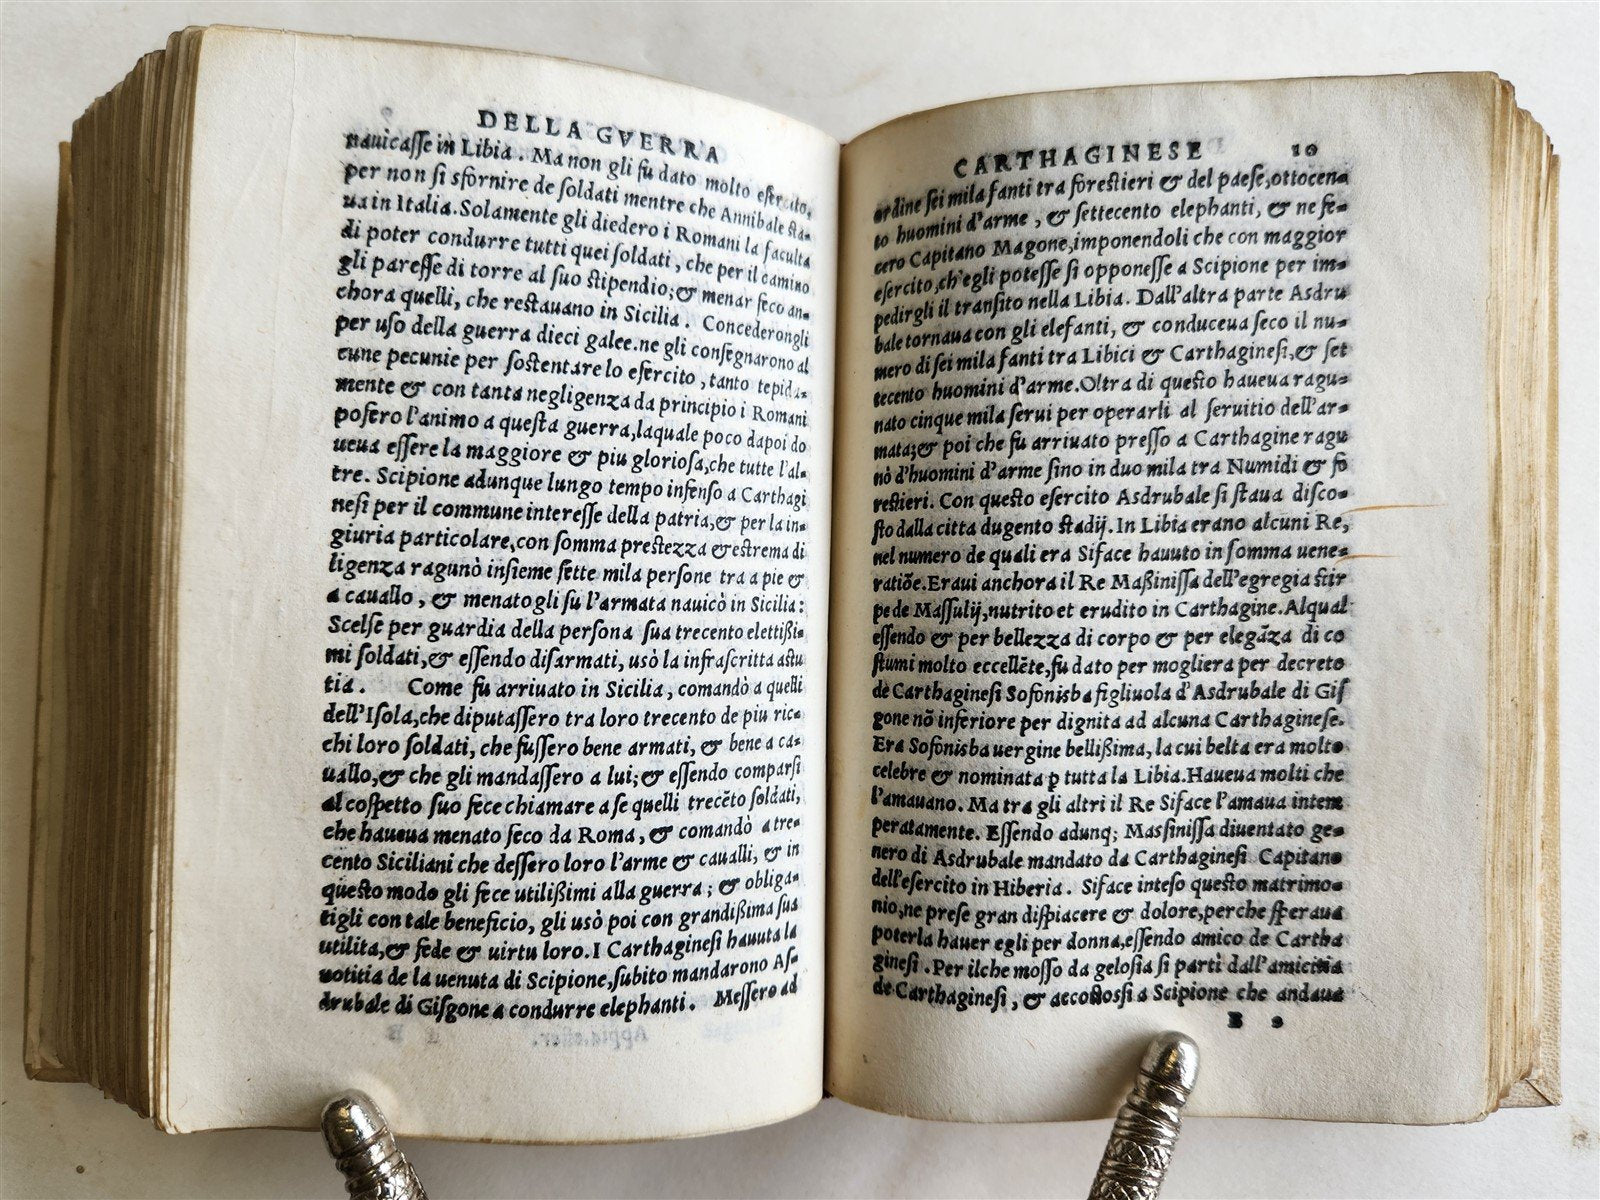 DELLA GVERRA
nauicaſſe in Libia. Ma non gli fu dato molto eſercito,
per non ſi sfornire de ſoldati mentre che Annibale ſta-
ua in Italia. Solamente gli diedero i Romani la faculta
di poter condurre tutti quei ſoldati, che per il camino
gli pareſſe di torre al ſuo ſtipendio; & menar ſeco an-
chora quelli, che reſtauano in Sicilia. Concederongli
per uſo della guerra dieci galee. ne gli conſegnarono al
cune pecunie per ſoſtentare lo eſercito, tanto tepida-
mente & con tanta negligenza da principio i Romani
poſero l'animo a queſta guerra, laquale poco dapoi do
ueua eſſere la maggiore & piu glorioſa, che tutte l'al-
tre. Scipione adunque lungo tempo infenſo a Carthagi
neſi per il commune intereſſe della patria, & per la in-
giuria particolare, con ſomma preſtezza & eſtrema di
ligenza ragunò inſieme ſette mila perſone tra a pie &
a cauallo, & menatogli ſu l'armata nauicò in Sicilia:
Scelſe per guardia della perſona ſua trecento elettißi-
mi ſoldati, & eſſendo diſarmati, usò la infraſcritta aſtu
tia. Come fu arriuato in Sicilia, comandò a quelli
dell'Iſola, che diputaſſero tra loro trecento de piu ric-
chi loro ſoldati, che fuſſero bene armati, & bene a ca-
uallo, & che gli mandaſſero a lui; & eſſendo comparſi
al coſpetto ſuo fece chiamare a ſe quelli trecēto ſoldati,
che haueua menato ſeco da Roma, & comandò a tre-
cento Siciliani che deſſero loro l'arme & caualli, & in
queſto modo gli fece utilißimi alla guerra; & obliga-
tigli con tale beneficio, gli usò poi con grandißima ſua
utilita, & fede & uirtu loro. I Carthagineſi hauuta la
notitia de la uenuta di Scipione, ſubito mandarono Aſ-
drubale di Giſgone a condurre elephanti. Meſſero ad
CARTHAGINESE 10
ordine ſei mila fanti tra foreſtieri & del paeſe, ottocen-
to huomini d'arme, & ſettecento elephanti, & ne fe-
cero Capitano Magone, imponendoli che con maggior
eſercito, ch'egli poteſſe ſi opponeſſe a Scipione per im-
pedirgli il tranſito nella Libia. Dall'altra parte Asdru
bale tornaua con gli elefanti, & conduceua ſeco il nu-
mero di ſei mila fanti tra Libici & Carthagineſi, & ſet
tecento huomini d'arme. Oltra di queſto haueua ragu-
nato cinque mila ſerui per operarli al ſeruitio dell'ar-
mata; & poi che fu arriuato preſſo a Carthagine ragu
nò d'huomini d'arme ſino in duo mila tra Numidi & fo
reſtieri. Con queſto eſercito Asdrubale ſi ſtaua diſco-
ſto dalla citta dugento ſtadij. In Libia erano alcuni Re,
nel numero de quali era Siface hauuto in ſomma uene-
ratiōe. Eraui anchora il Re Maßiniſſa dell'egregia ſtir
pe de Maſſulij, nutrito et erudito in Carthagine. Al qual
eſſendo & per bellezza di corpo & per elegāza di co
ſtumi molto eccellēte, fu dato per mogliera per decreto
de Carthagineſi Sofonisba figliuola d'Asdrubale di Giſ
gone nō inferiore per dignita ad alcuna Carthagineſe.
Era Sofonisba uergine bellißima, la cui belta era molto
celebre & nominata ꝑ tutta la Libia. Haueua molti che
l'amauano. Ma tra gli altri il Re Siface l'amaua intem
peratamente. Eſſendo adunq; Masſiniſſa diuentato ge-
nero di Asdrubale mandato da Carthagineſi Capitano
dell'eſercito in Hiberia. Siface inteſo queſto matrimo-
nio, ne preſe gran diſpiacere & dolore, perche ſperaua
poterla hauer egli per donna, eſſendo amico de Cartha
gineſi. Per ilche moſſo da geloſia ſi partì dall'amicitia
de Carthagineſi, & accoſtoſſi a Scipione che andaua
B 2